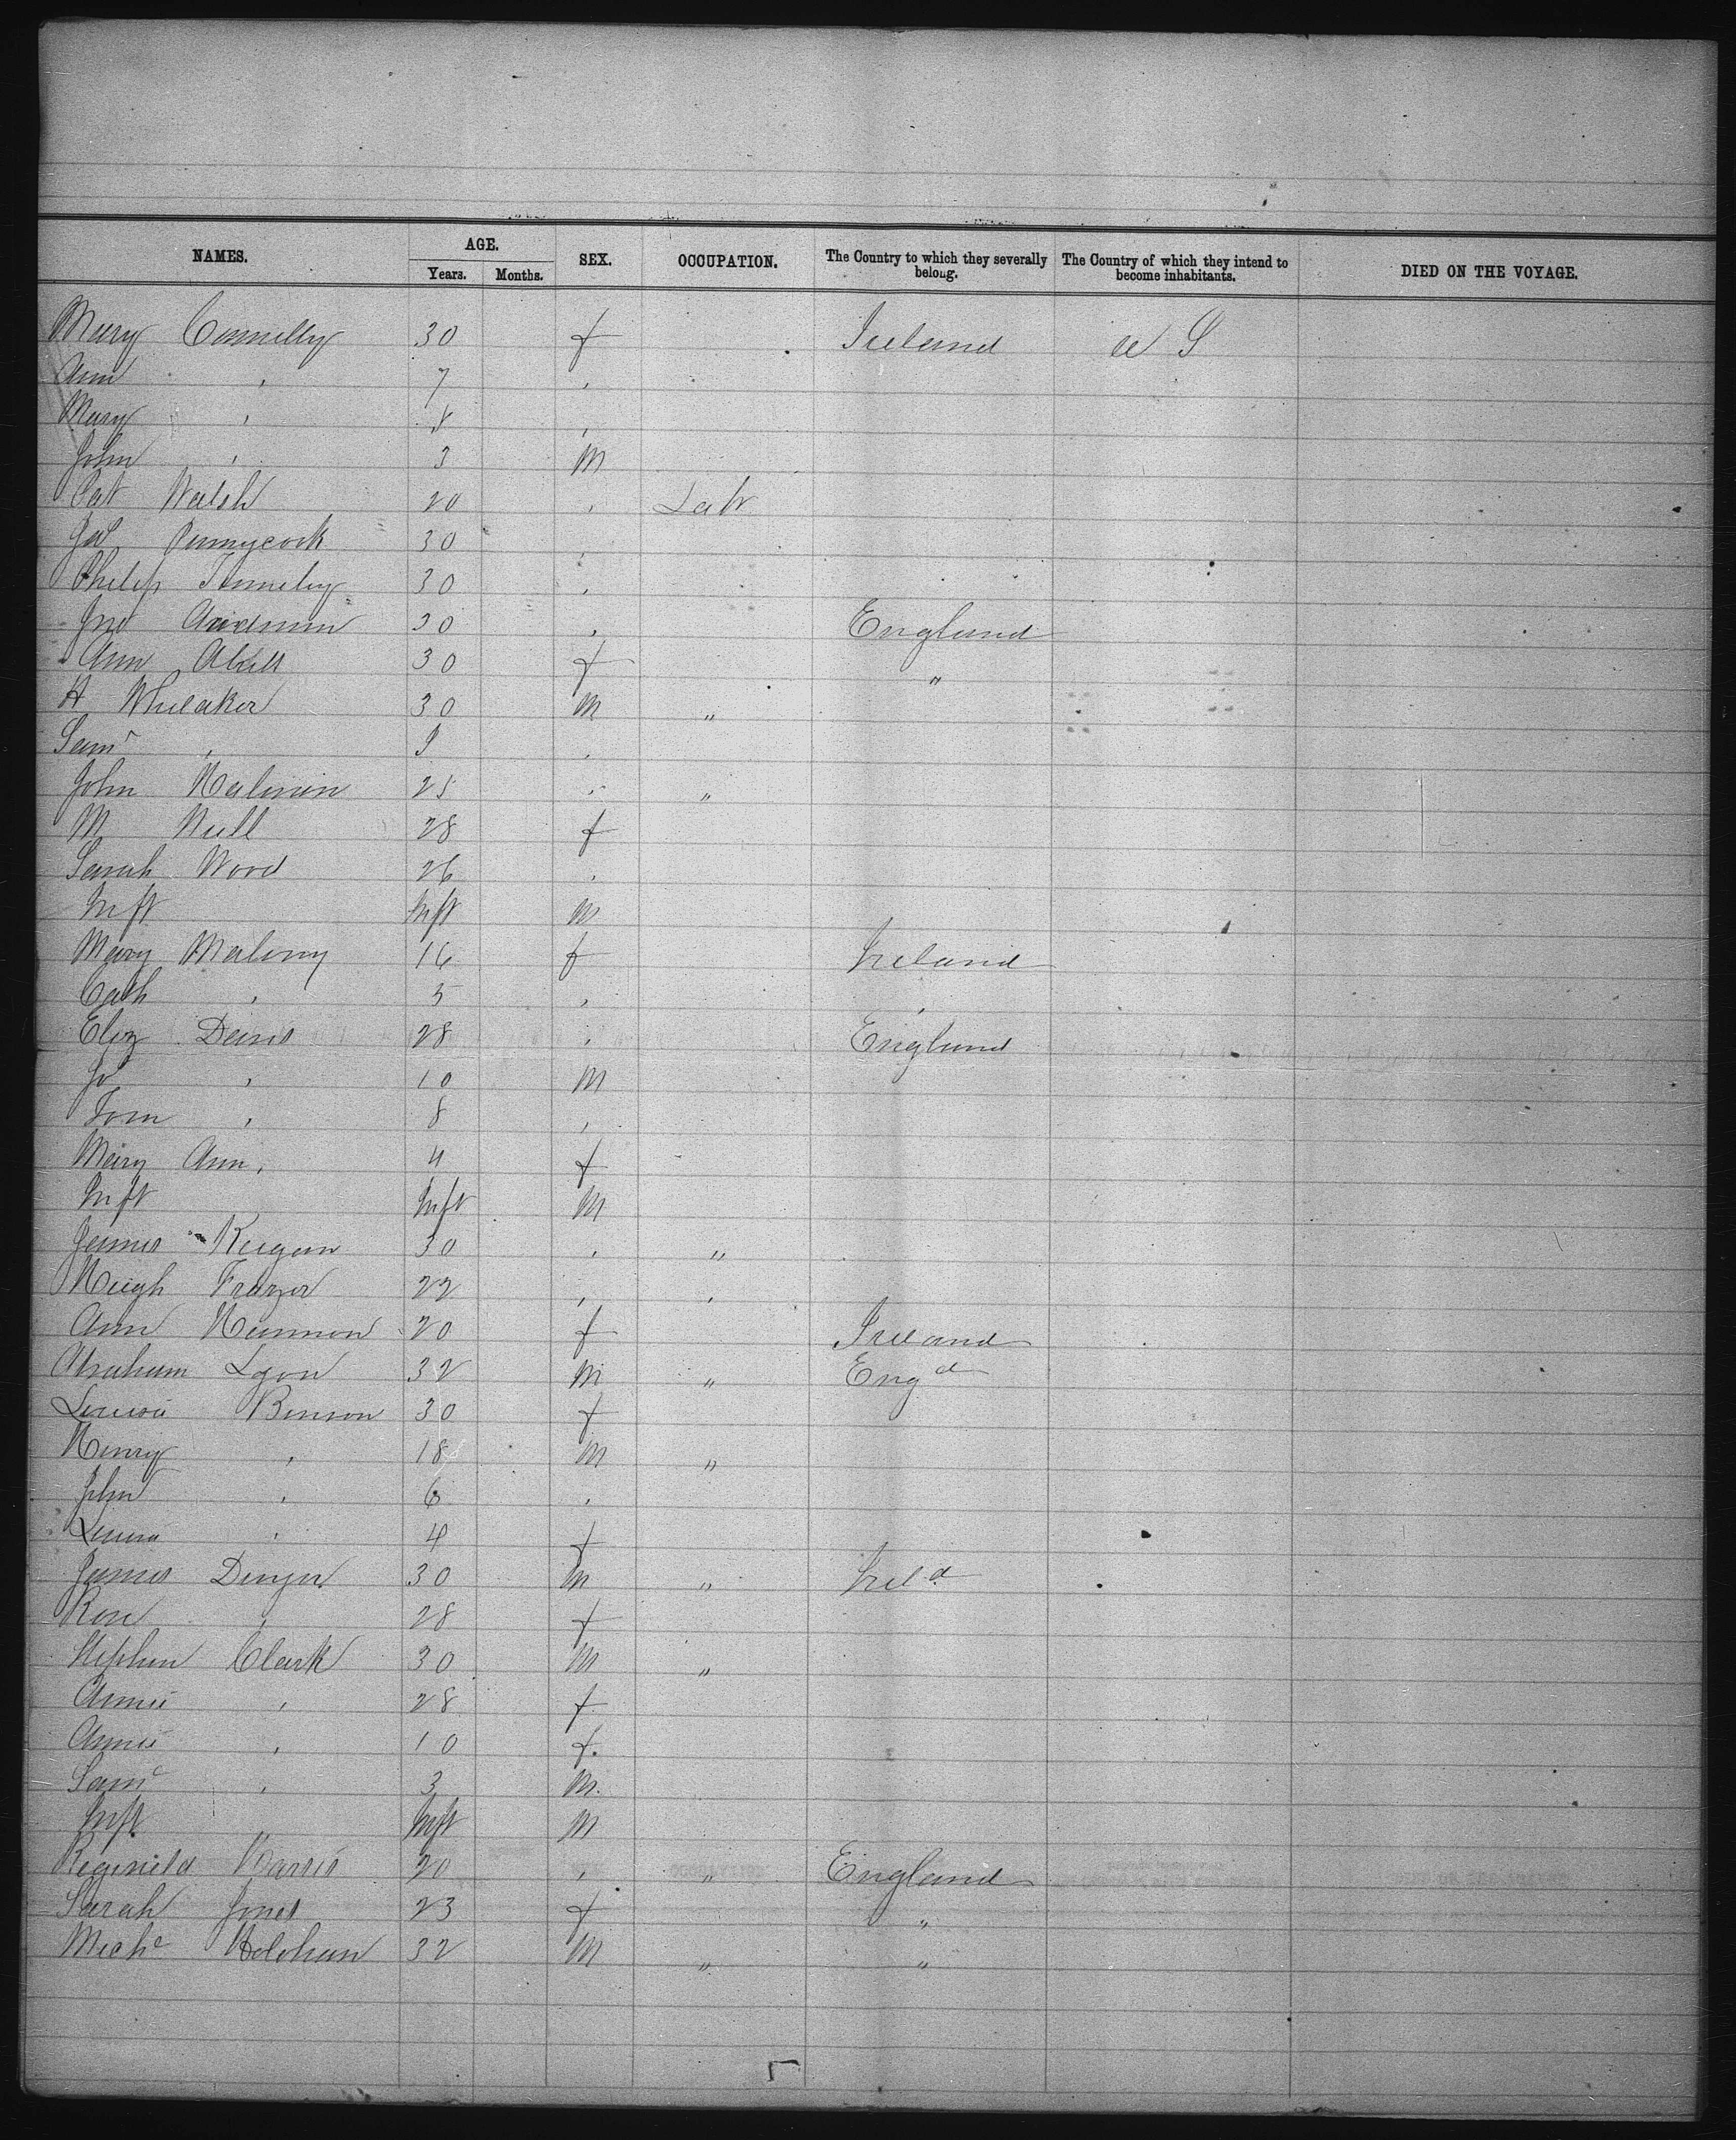 NAMES. AGE. SEX. OCCUPATION. The Country to which they severally belong. The Country of which they intend to become inhabitants. DIED ON THE VOYAGE.
Years. Months.
Mary Connelly 30 f Ireland U S
Ann , 7 ,
Mary , 8 ,
John , 3 M
Pat Walsh 20 , Labr
Jas Pennycook 30 ,
Philip 30 ,
Jno 30 , England
Ann 30 f "
H Wheaker 30 M "
Saml , 9 ,
John 25 , "
M 28 f
Sarah Wood 26 ,
Inft Inft M
Mary Malony 16 f Ireland
Cath , 5 , ,
Eliz Denis 28 , England
Jo , 10 M
Tom , 8 ,
Mary Ann , 4 f
Inft Inft M
James Keegan 30 , "
Hugh Frazer 22 , ,
Ann Hannon 20 f Ireland
Abraham Lyon 32 M " Engd
Louisa Benson 30 f
Henry , 18 M "
John , 6 ,
Louisa , 4 f
James Dwyer 30 M " Ireld
Rose , 28 f
Stephen Clark 30 M "
Annie , 28 f
Annie , 10 f.
Saml , 3 M.
Inft " Inft M
Reginald Harris 20 , " England
Sarah Jones 23 f "
Michl Holohan 32 M " "